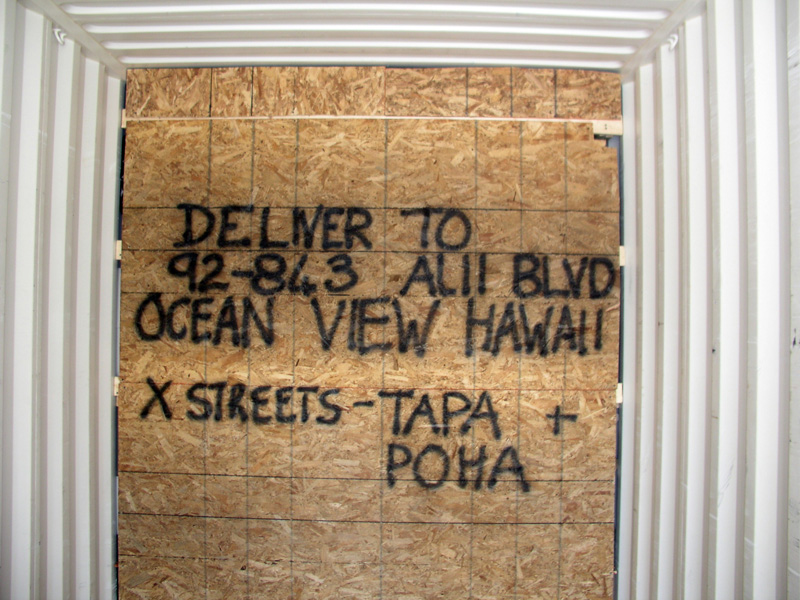 DELIVER TO
92-843 ALII BLVD
OCEAN VIEW HAWAII
X STREETS - TAPA +
POHA